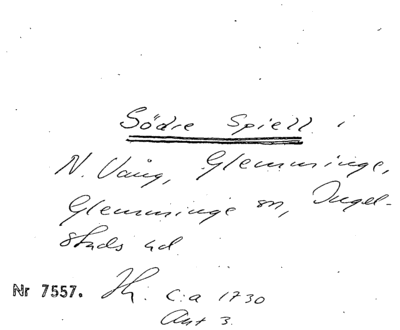 Södre Spiell i
N. Vång, Glemminge,
Glemminge sn, Ingel-
stads hd.
Nr 7557. Hs. c:a 1730
Ant 3.